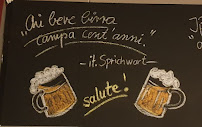 „Chi beve birra
campa cent'anni."
- it. Sprichwort -
salute!